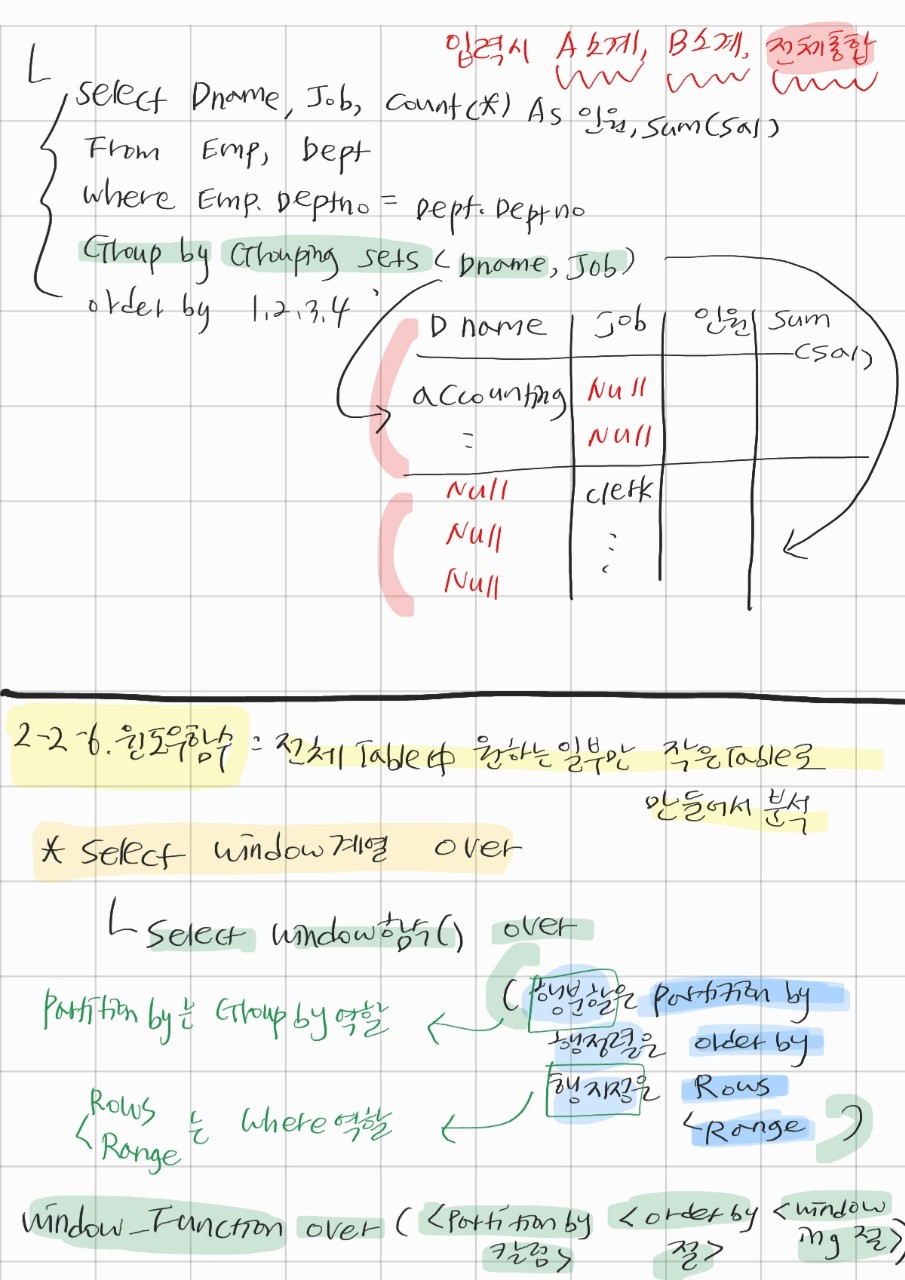 입력시 A소계, B소계, 전체통합
└ Select Dname, Job, Count(*) As 인원, sum(sal)
From Emp, Dept
where Emp.Deptno = Dept.Deptno
Group by Grouping sets (Dname, Job)
order by 1,2,3,4
Dname Job 인원 sum(sal)
accounting Null
: Null
Null clerk
Null :
Null
2-2-6. 윈도우함수 : 전체 Table中 원하는 일부만 작은 Table로
만들어서 분석
* Select window계열 over
└ Select window함수() over
Partition by는 Group by 역할
( 행분할은 Partition by
행정렬은 order by
행지정은 Rows
< Range )
Rows
< Range 는 where역할
window_Function over ( <partition by 칼럼> <order by 절> <windowing 절>